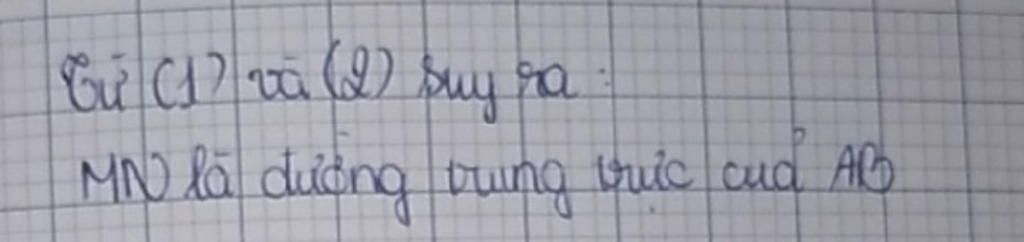 Từ (1) và (2) suy ra :
MN là đường trung trực của AB